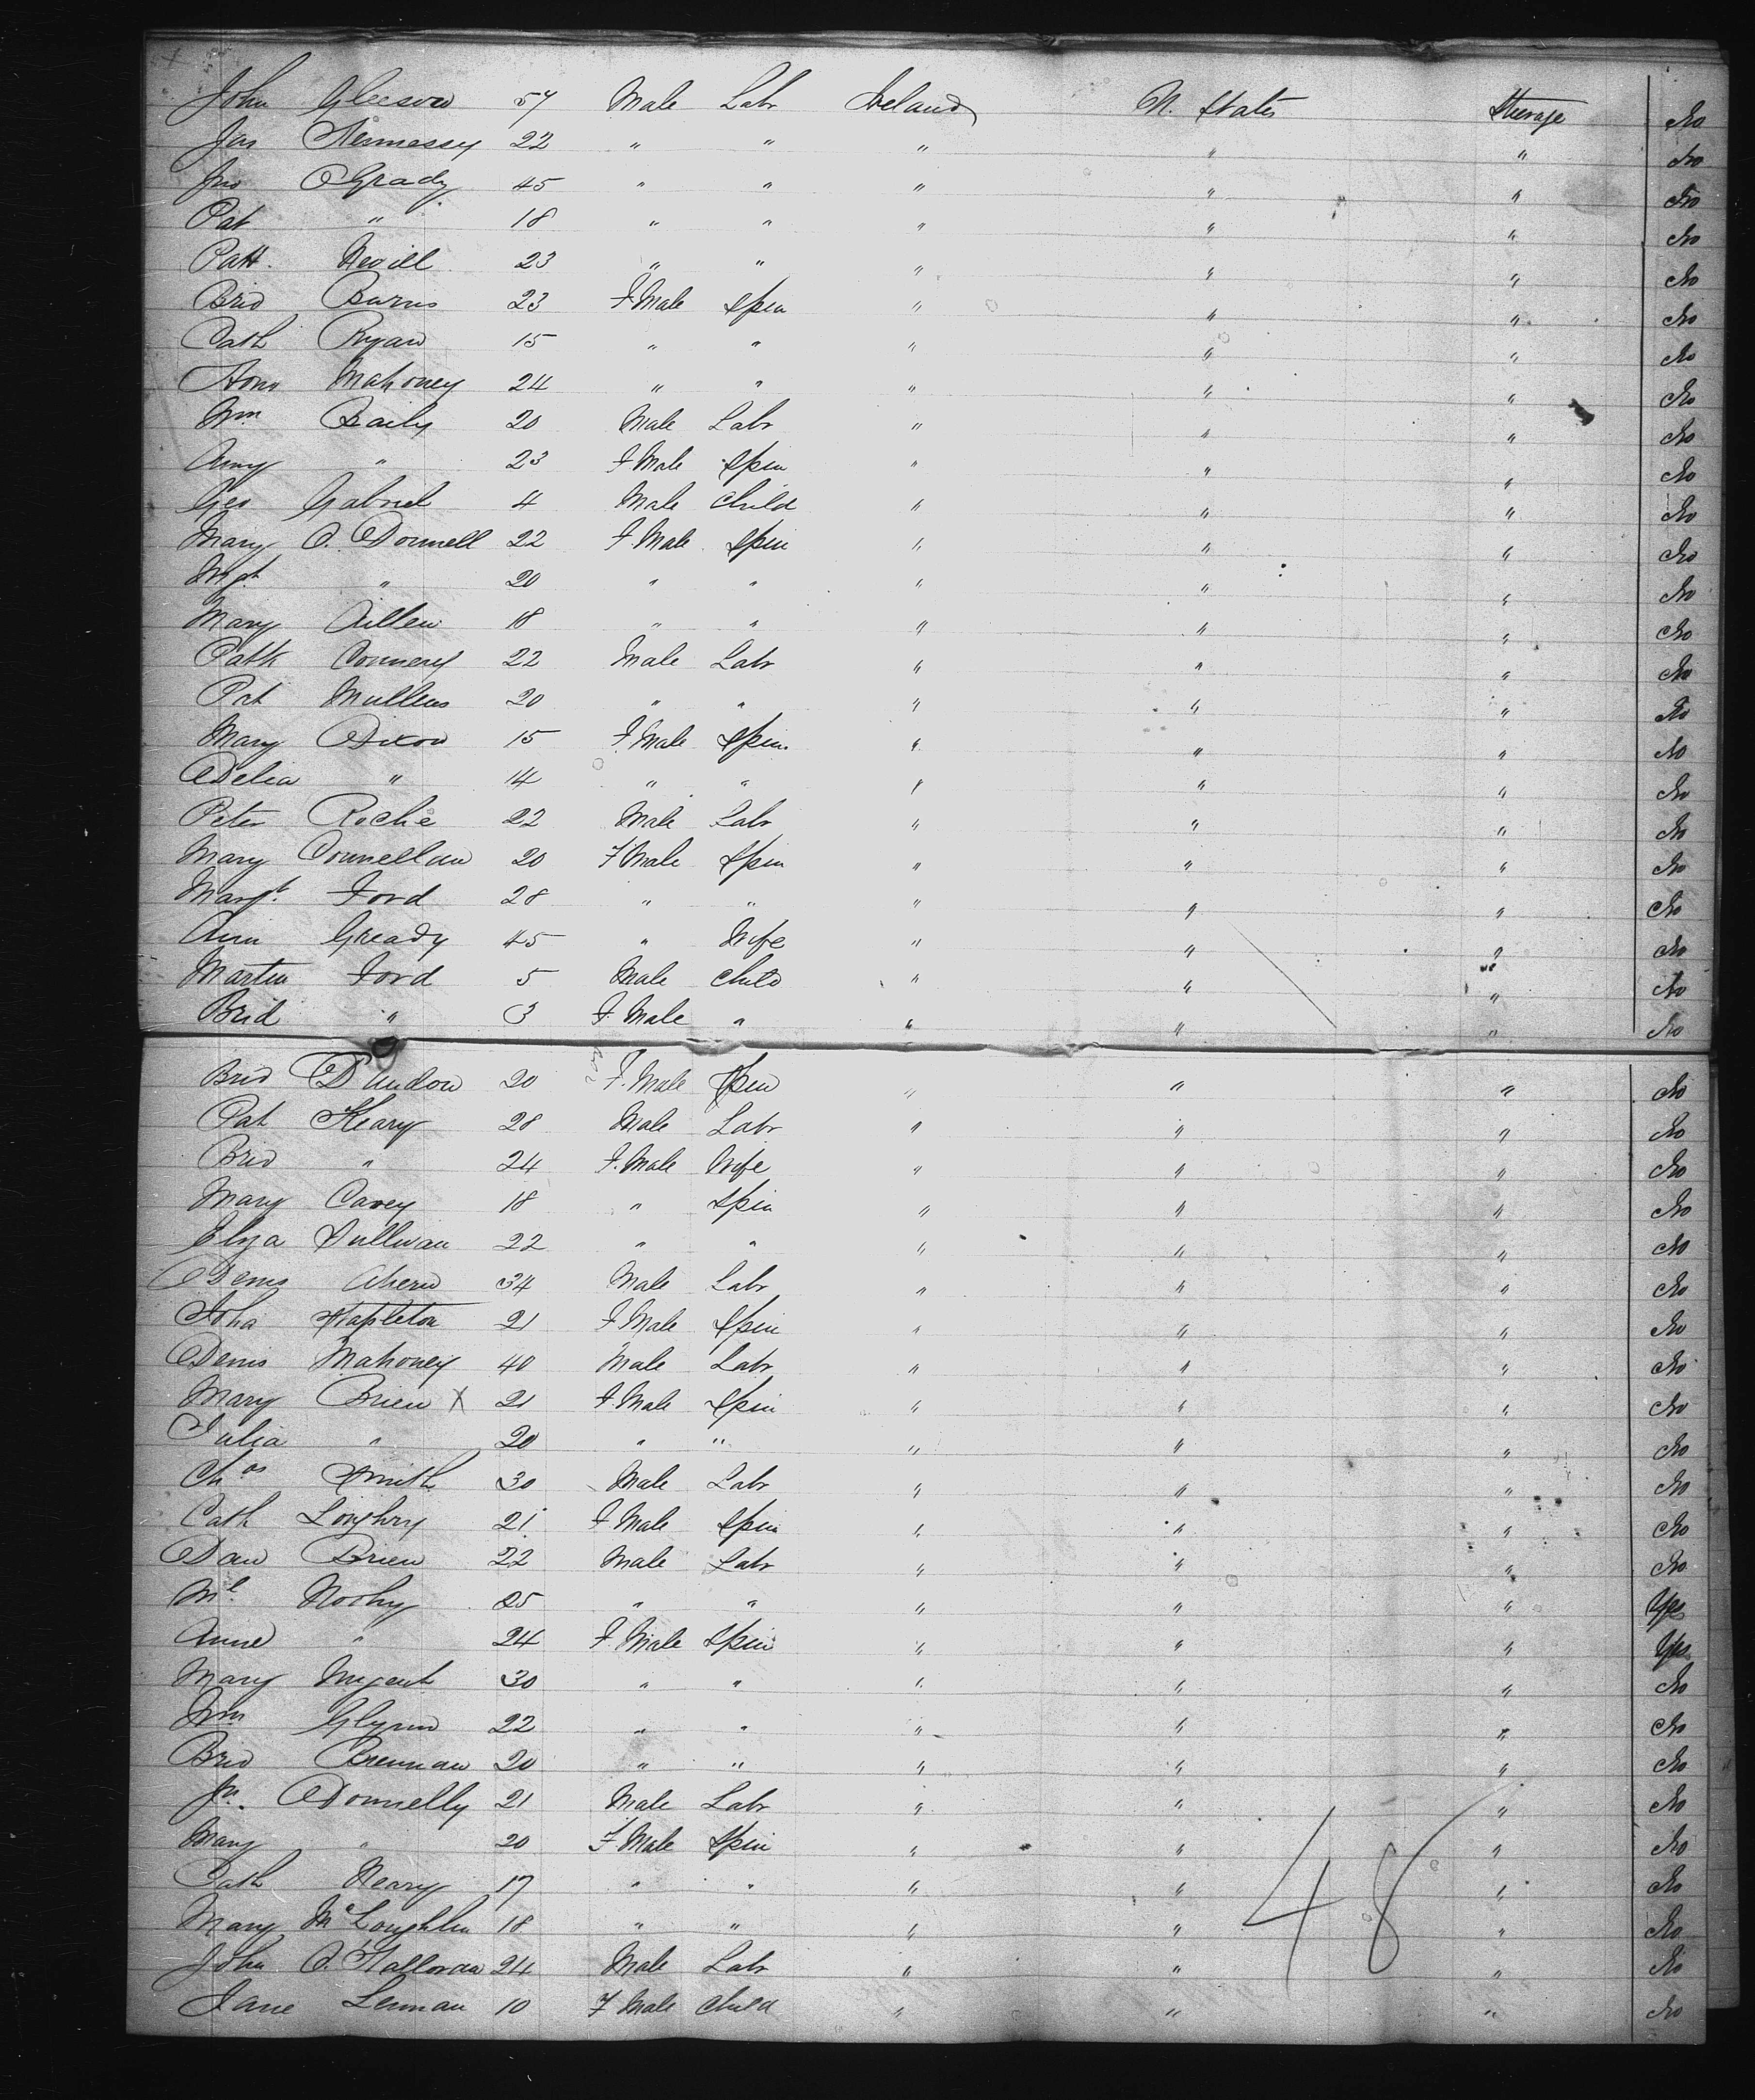 John Gleeson 57 Male Labr Ireland U. States Steerage No
Jas Hennessy 22 " " " " " No
Jno O Grady 45 " " " " " No
Pat " 18 " " " " " No
Patk. Nevill 23 " " " " " No
Brid Burns 23 F Male Spin " " " No
Cath Ryan 15 " " " " " No
Hono Mahoney 24 " " " " " No
Wm Baily 20 Male Labr " " " No
Amy " 23 F Male Spin " " " No
Geo Gabriel 4 Male Child " " " No
Mary O. Donnell 22 F Male Spin " " " No
Mgt " 20 " " " " " No
Mary Cullen 18 " " " " " No
Patk Connery 22 Male Labr " " " No
Pat Mullens 20 " " " " " No
Mary Dixon 15 F. Male Spin " " " No
Delia " 14 " " " " " No
Peter Roche 22 Male Labr " " " No
Mary Connellan 20 F Male Spin " " " No
Margt. Ford 28 " " " " " No
Ann Gready 45 " Wife " " " No
Martin Ford 5 Male Child " " " No
Brid " 3 F. Male " " " " No
Brid Dundon 20 F. Male Spin " " " No
Pat Keary 28 Male Labr " " " No
Brid " 24 F. Male Wife " " " No
Mary Carey 18 " Spin " " " No
Eliza Sullivan 22 " " " " " No
Denis Ahern 34 Male Labr " " " No
Joha Stapleton 21 F Male Spin " " " No
Denis Mahoney 40 Male Labr " " " No
Mary Brien X 21 F. Male Spin " " " No
Julia " 20 " " " " " No
Chas Smith 30 Male Labr " " " No
Cath Loughry 21 F Male Spin " " " No
Dan Brien 22 Male Labr " " " No
Ml 25 " " " " " Yes
Anne " 24 F Male Spin " " " Yes
Mary Nugent 30 " " " " " No
Wm Glynn 22 " " " " " No
Brid Brennan 20 " " " " " No
Jn. Donnelly 21 Male Labr " " " No
Mary " 20 F Male Spin " " " No
Cath Neary 17 " " " " " No
Mary McLoughlin 18 " " " " " No
John O. Halloran 24 Male Labr " " " No
Jane Lennan 10 F Male Child " " " No
48